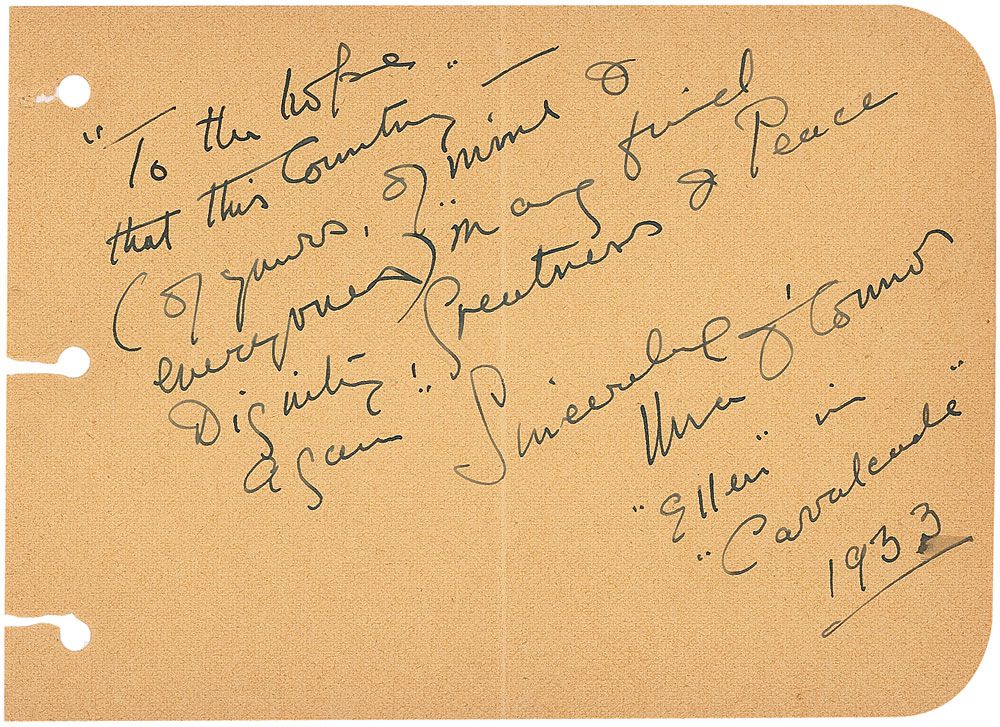 "To the hope..
that this Country —
(of yours, of mine &
everyones) "may find
Dignity Greatness & Peace
again!"
Sincerely
Una O'Connor
"Ellen" in
"Cavalcade"
1933